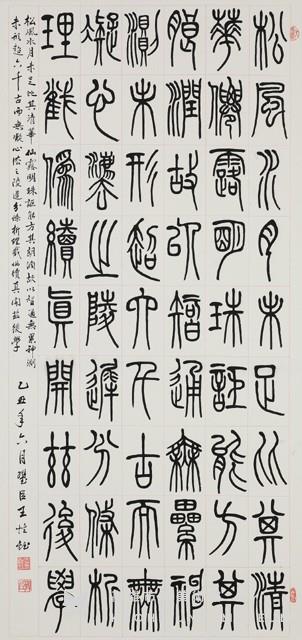 松風水月未足比其清
華仙露明珠詎能方其
朗潤故以智通無累神
測未形超六千古而無
凝心法之陵遲分條析
理截偽續真開茲後學
松風水月未足比其清華仙露明珠詎能方其朗潤故以智通無累神測
未形超六千古而無凝心法之陵遲分條析理截偽續真開茲後學
乙丑年六月